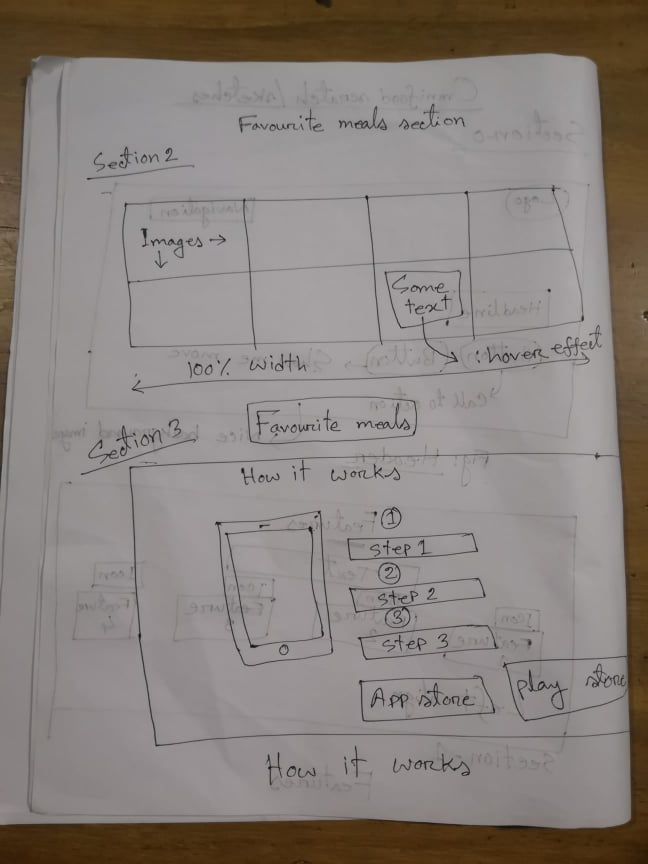 Favourite meals section
Section 2
Images →
↓
Some
text
: hover effect
100% width
Favourite meals
Section 3
How it works
1
Step 1
2
Step 2
3
Step 3
App store
Play store
How it works